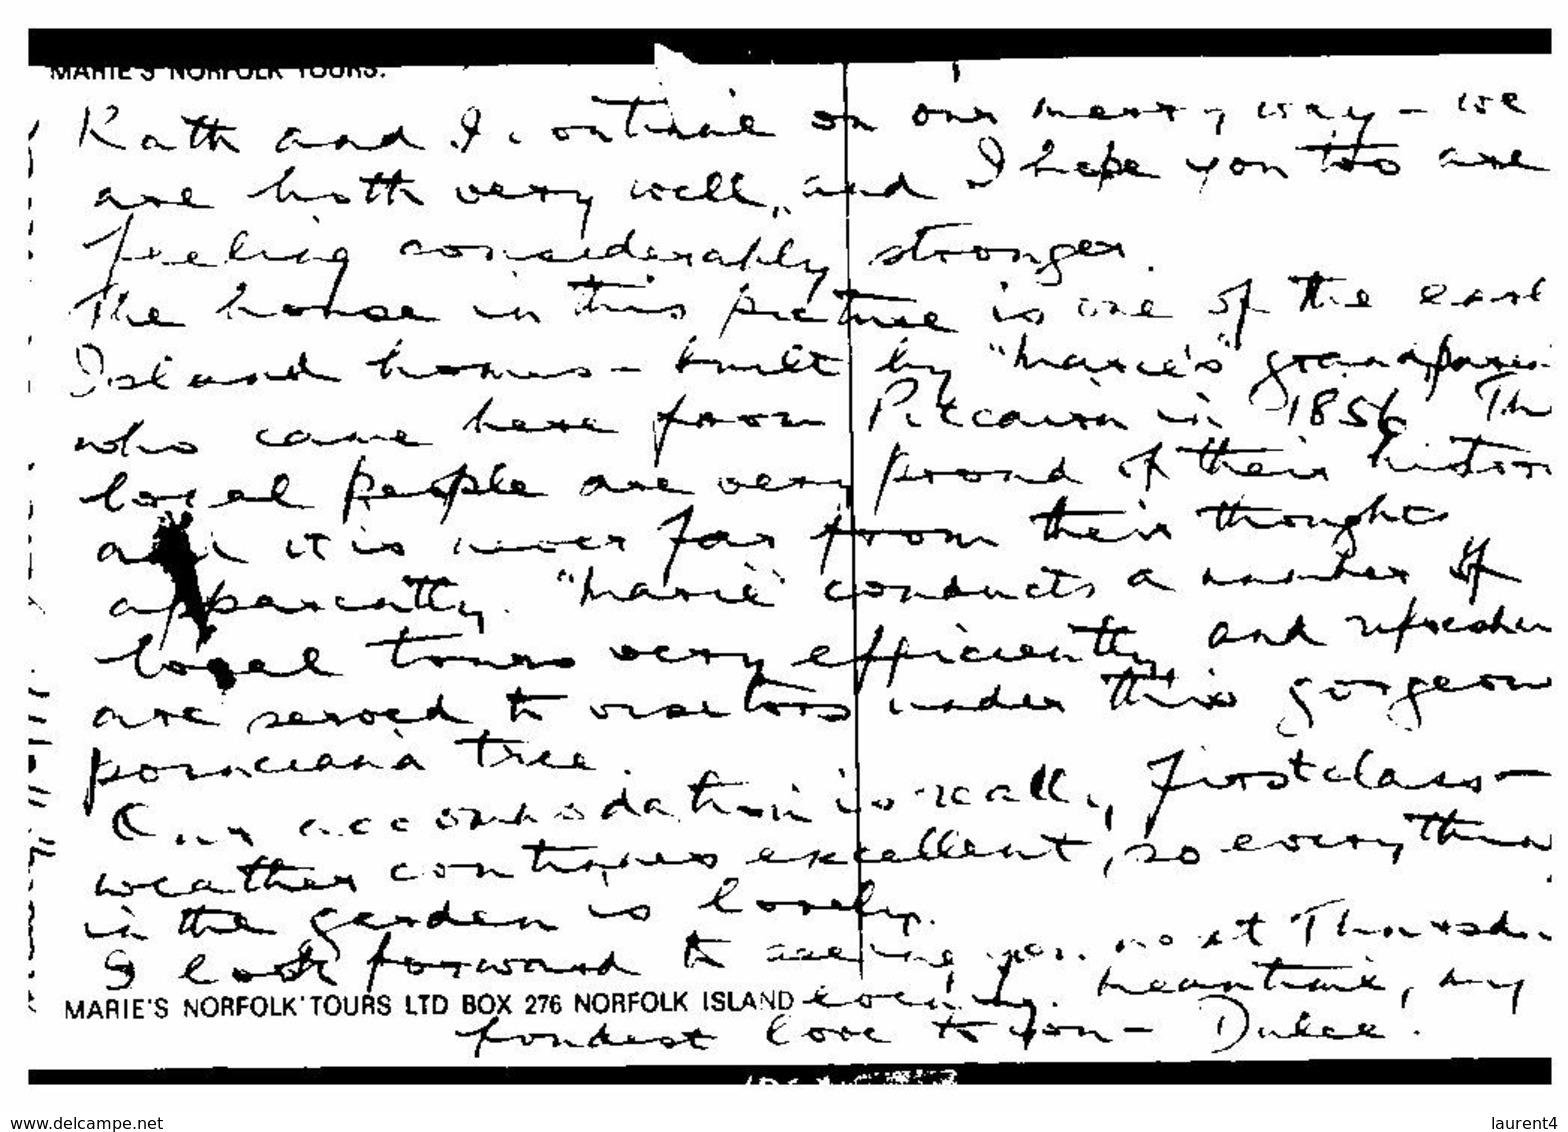 MARIE'S NORFOLK TOURS.
Kath and I continue on our merry way - we
are both very well, and I hope you too are
feeling considerably stronger.
The house in this picture is one of the earl
Island homes - built by "Marie's" grandparen
who came here from Pitcairn in 1856. Th
local people are very proud of their histor
and it is never far from their thoughts
apparently. "Marie" conducts a number of
local tours very efficiently and refreshm
are served to visitors under this gorgeou
poinciana tree.
Our accommodation is really first class -
weather continues excellent, so everythin
in the garden is lovely.
I look forward to seeing you next Thursd
MARIE'S NORFOLK TOURS LTD BOX 276 NORFOLK ISLAND evening. Meantime, my
fondest love to you - Dulcie.
www.delcampe.net
laurent4